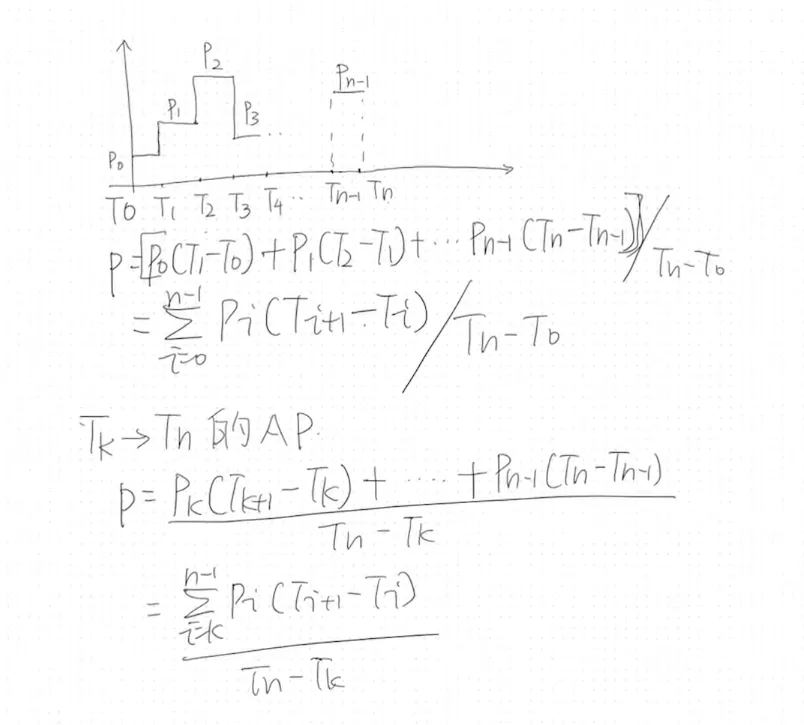 P₂
Pₙ₋₁
P₁
P₃
P₀
T0 T₁ T₂ T₃ T₄ ·· Tₙ₋₁ Tₙ
P=[P₀(T₁-T₀)+P₁(T₂-T₁)+···Pₙ₋₁(Tₙ-Tₙ₋₁)]/Tₙ-T₀
= \sum_{i=0}^{n-1} Pᵢ(Tᵢ₊₁-Tᵢ)/Tₙ-T₀
Tₖ→Tₙ 的AP.
P= \frac{Pₖ(Tₖ₊₁-Tₖ)+ ····· +Pₙ₋₁(Tₙ-Tₙ₋₁)}{Tₙ-Tₖ}
= \frac{\sum_{i=k}^{n-1} Pᵢ(Tᵢ₊₁-Tᵢ)}{Tₙ-Tₖ}